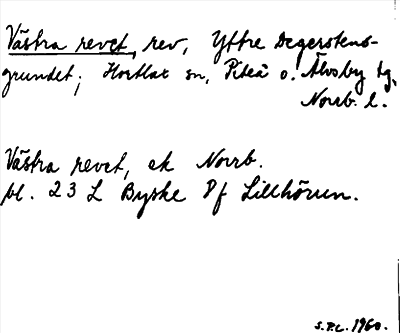 Västra revet, rev, Yttre Degerstens-
grundet; Hortlax sn, Piteå o. Älvsby tg,
Norrb. l.
Västra revet, ek Norrb.
bl. 23 L Byske Df Lillhörun.
S.P.L. 1960.